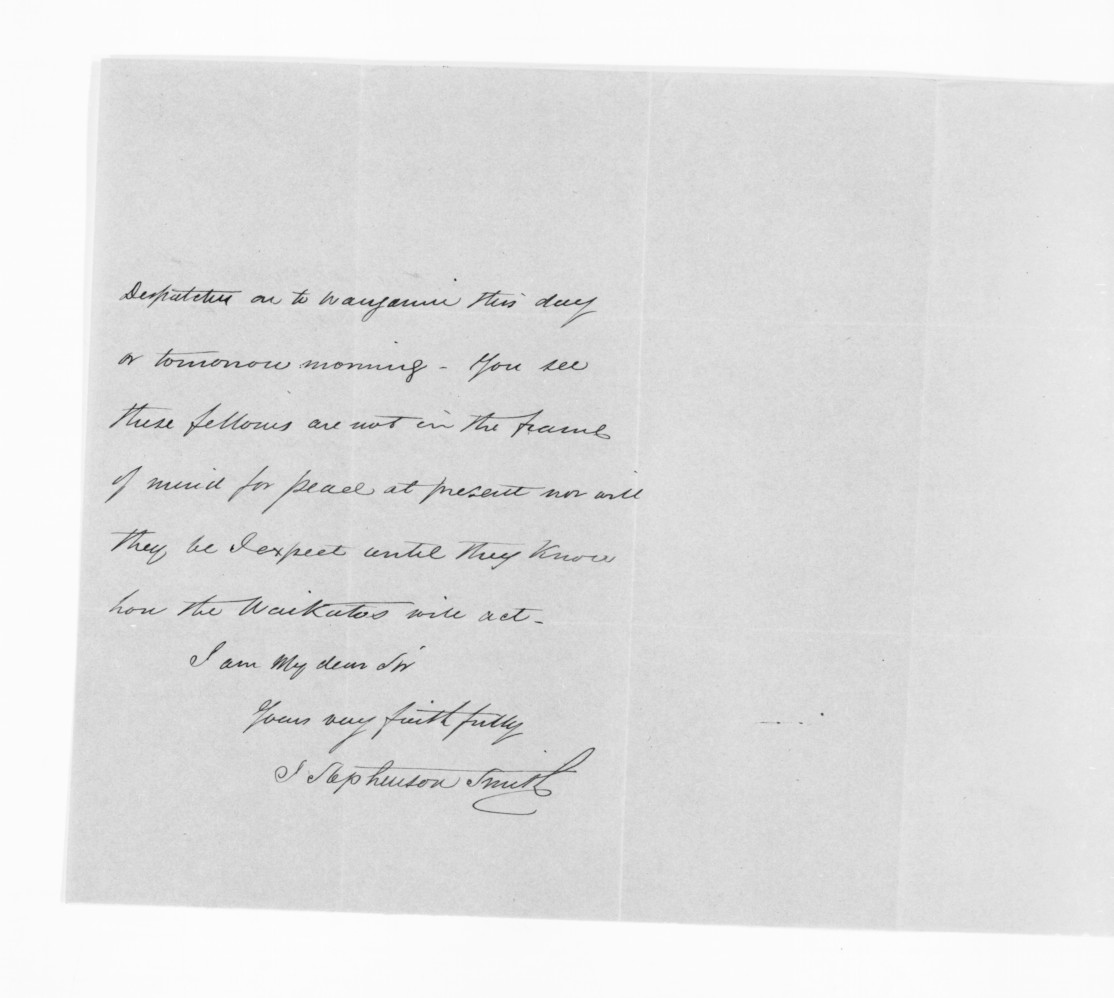 Despatches on to Wanganui this day
or tomorrow morning - You see
these fellows are not in the frame
of mind for peace at present nor will
they be I expect until they Know
how the Waikatos will act -
I am My dear Sir
Yours very faithfully
J Stephenson Smith